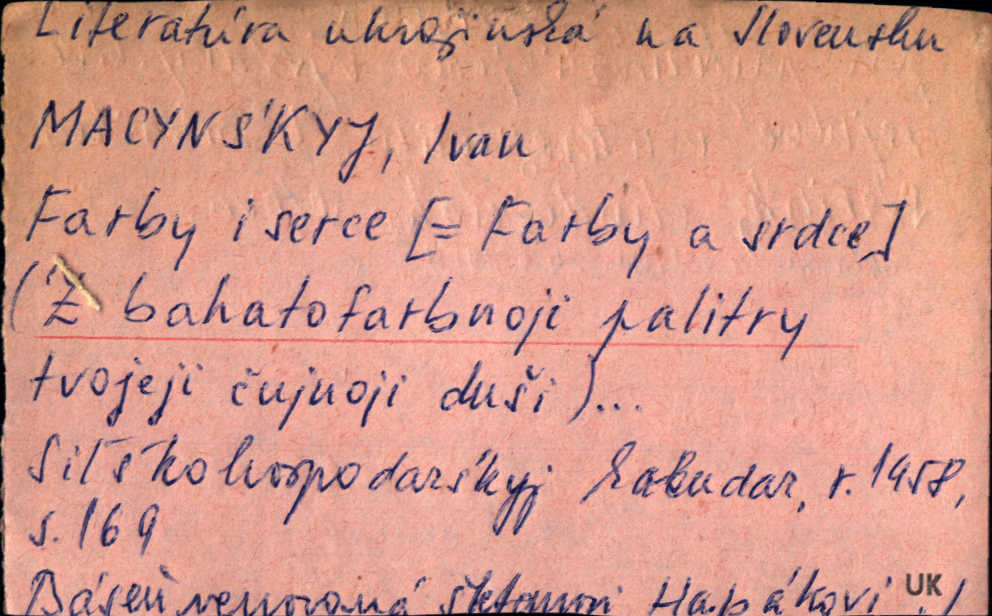 Literatúra ukrajinská na Slovensku
MACYNŚKYJ, Ivan
Farby i serce [= Farby a srdce]
(Z bahatofarbnoji palitry
tvojeji čujnoji duši)...
Siľśkohospodarśkyj kalendar, r. 1958,
s. 169
Báseň venovaná Štefanovi Hapákovi
UK